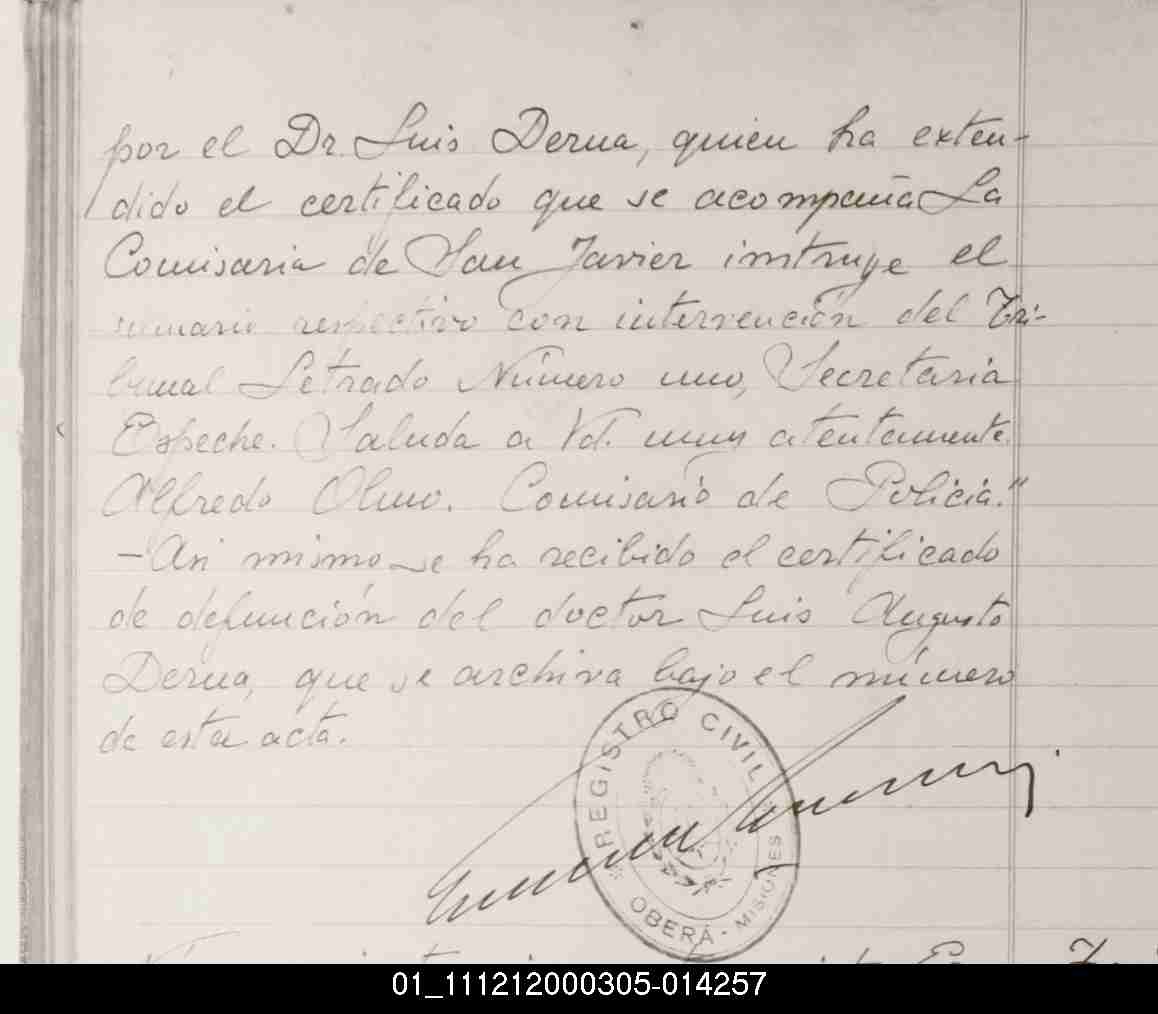 por el Dr. Luis Derna, quien ha exten-
dido el certificado que se acompaña La
Comisaria de San Javier instruye el
sumario respectivo con intervención del Tri-
bunal Letrado Número uno, Secretaria
Espeche. Saluda a Vd. muy atentamente.
Alfredo Olmo. Comisario de Policia."
-Asi mismo se ha recibido el certificado
de defunción del doctor Luis Augusto
Derna, que se archiva bajo el número
de esta acta.
REGISTRO CIVIL
OBERÁ - MISIONES
01_111212000305-014257